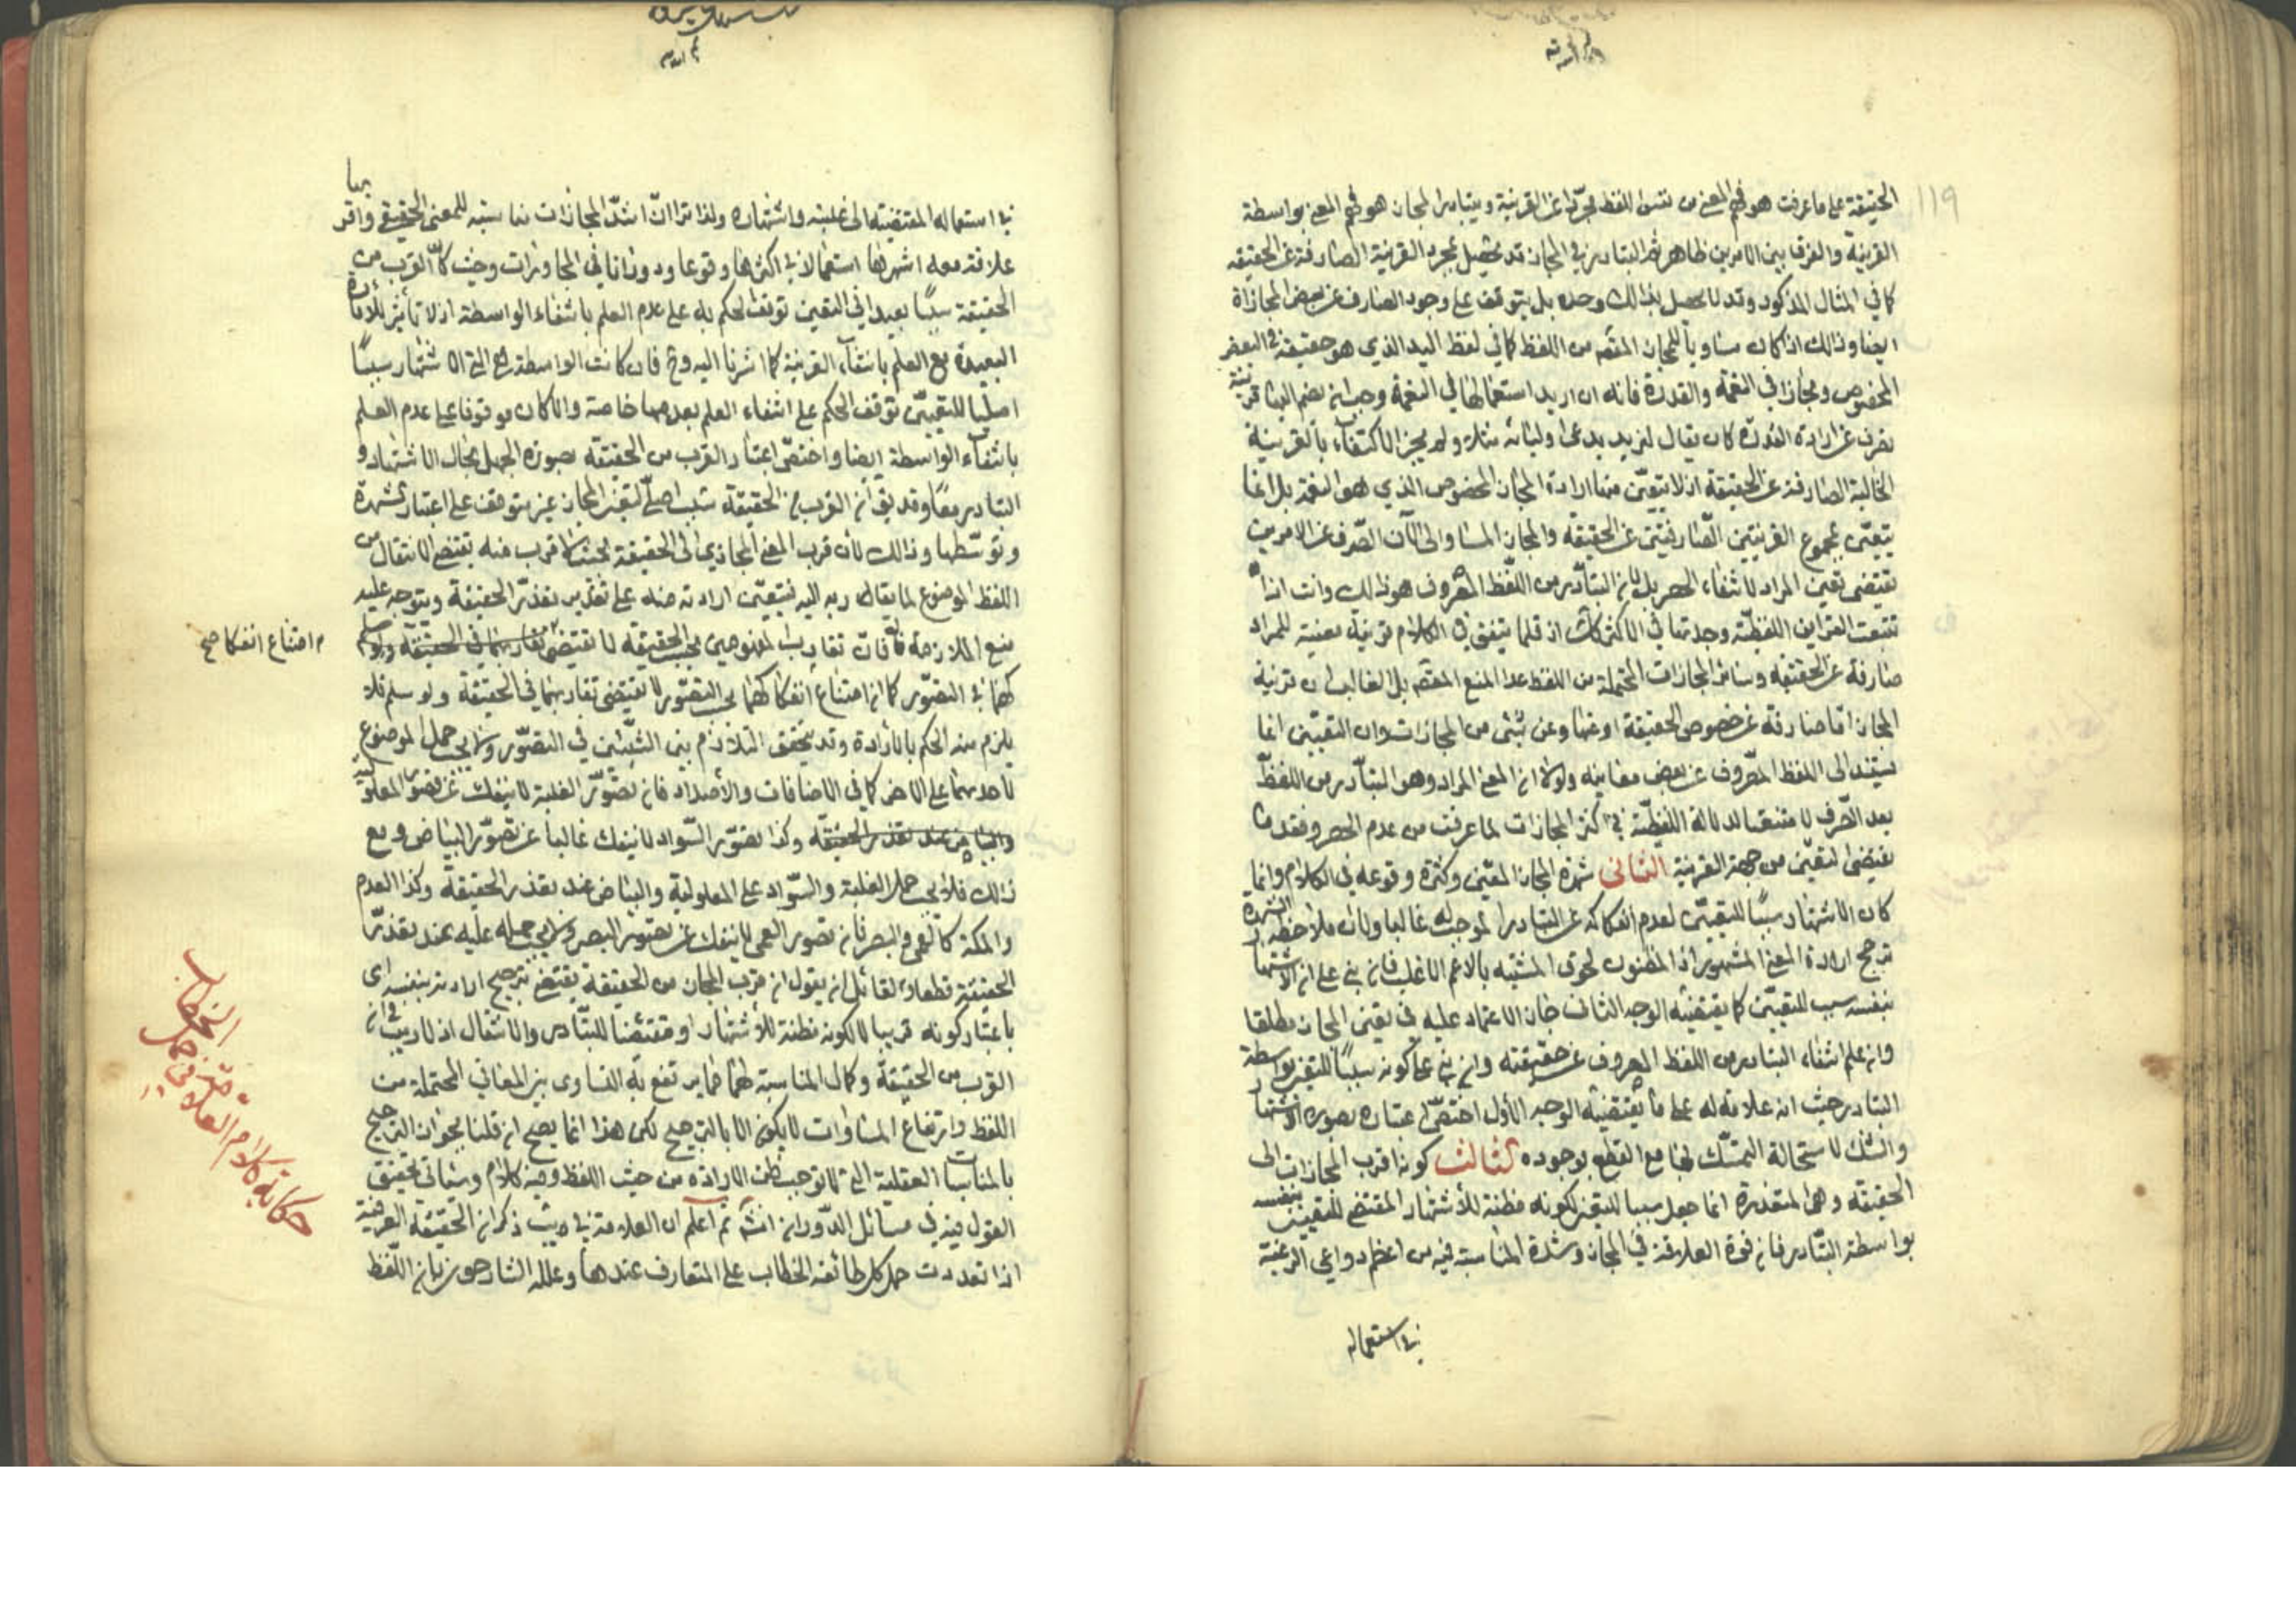 ١١٩
الحقيقة على ما عرفت هو فهم المعنى من نفس اللفظ مجرّدا عن القرينة وبتبادر المجاز هو فهم المعنى بواسطة
القرينة والفرق بين الامرين ظاهر ثم التبادر في المجاز قد يحصل بمجرد القرينة الصارفة عن الحقيقة
كما في المثال المذكور وقد لا يحصل بذلك وحده بل يتوقف على وجود الصارف عن بعض المجازاة
ايضا وذلك اذا كان مساويا للمجاز المفهم من اللفظ كما في لفظ اليد الذي هو حقيقة في العضو
المخصوص ومجاز في النعمة والقدرة فانه ان اريد استعمالها في النعمة وجب ان يضم اليها قرينة
تصرف عن ارادة القدرة كان يقال لزيد يد عملا ولسانه مثلا ولم يجز الاكتفاء بالقرينة
الحالية الصارفة عن الحقيقة اذ لا يتعيّن منها ارادة المجاز المخصوص الذي هو النعمة بل انما
يتعيّن بمجموع القرينتين الصّارفتين عن الحقيقة والمجاز المساوى لان الصّرف عن الامرين
يقتضى تعين المراد لانتفاء الحصر بل لان التبادر من اللّفظ المصروف هو ذلك وانت اذا
تتبعت القراين اللفظيّة وجدتها في الاكثر كك اذ قلما يتفق في الكلام قرينة معينة للمراد
صارفة عن الحقيقة وسائر المجازات المحتملة من اللفظ عدا المنع المفهم بل الغالب ان قرينة
المجاز اما صارفة عن خصوص الحقيقة او عنها وعن شئ من المجازات وان التعيّن انما
يستند الى اللفظ المصروف عن بعض معانيه ولولا ان المعنى المراد وهو المتبادر من اللفظ
بعد الصّرف لامتنعت الدلالة اللفظيّة في اكثر المجازات لما عرفت من عدم الحصر وفقد ما
يقتضى التعيّن من جهة القرينة الثاني شهرة المجاز المعيّن وكثرة وقوعه في الكلام وانما
كان الاشتهار سببًا للتعيّن لعدم انفكاكه عن التبادر الموجب له غالبا ولان ملاحظة الشهرة
ترجح ارادة المعنى المشهور اذ المظنون لحوق المشتبه بالاعم الاغلب فان بنى على ان الاشتهار
بنفسه سبب للتعيّن كما يقتضيه الوجه الثاني جاز الاعتماد عليه في تعين المجاز مطلقا
وان علم انتفاء التبادر من اللفظ المصروف عن حقيقته وان بنى على كونه سببًا للتعين بواسطة
التبادر حيث انه علامة له على ما يقتضيه الوجه الاول اختصّ اعتباره بصورة الاشتهار
والشك لاستحالة التمسّك بها مع القطع بوجوده الثالث كونه اقرب المجازات الى
الحقيقة وهى المتعذرة انما جعل سببا للتعين لكونه مظنة للاشتهار المقتضى للتعين بنفسه
بواسطة التّبادر فان قوة العلاقة في المجاز وشدة المناسبة فيه من اعظم دواعى الرغبة
في استعماله
في استعماله المقتضية الى غلبته واشتهاره ولذا ترا انّ اشدّ المجازات مناسبة للمعنى الحقيقى واقربها
علاقة معه اشهرها استعمالا في اكثرها وقوعا ودورانا في المحاورات وحيث كان القرب من
الحقيقة سببًا بعيدا في التعين توقف الحكم به على عدم العلم بانتفاء الواسطة اذ لا تأثير للأمارة
البعيدة مع العلم بانتفاء القرينة كما اشرنا اليه وح فان كانت الواسطة هى الاشتهار سببًا
اصليا للتعيّن توقف الحكم على انتفاء العلم بعدمها خاصة والا كان موقوفا على عدم العلم
بانتفاء الواسطة ايضا واختصّ اعتبار القرب من الحقيقة بصورة الجهل بحال الاشتهار و
التبادر معًا وقد يقال ان القرب من الحقيقة سبب اصلىّ لتعين المجاز غير متوقف على اعتبار الشهرة
وتوسّطها وذلك لان قرب المعنى المجازي الى الحقيقة بحيث لا اقرب منه يقتضى الانتقال من
اللفظ الموضوع لما يقاربه اليه فيتعيّن ارادته منه على تقدير تعذّر الحقيقة ويتوجه عليه
منع الملازمة فان تقارب المفهومين بحسب الحقيقة لا يقتضى تقاربهما في الحقيقة
م امتناع انفكا صح
كهما في التصوّر كما ان امتناع انفكاكهما بحسب التصوّر لا يقتضى تقاربهما في الحقيقة ولو سلم فلا
يلزم منه الحكم بالارادة وقد يتحقق التلازم بين الشيئين في التصوّر ولا يجب حمل الموضوع
لاحدهما على الاخر كما في الاضافات والأضداد فان تصوّر العلية لا ينفك عن تصوّر المعلولية
وكذا تصوّر السّواد لا ينفك غالبا عن تصوّر البياض ومع
ذلك فلا يجب حمل العلية والسّواد على المعلولية والبياض عند تعذر الحقيقة وكذا العدم
والملكة كالعمى والبصر فان تصور العمى لا ينفك عن تصوّر البصر ولا يجب حمله عليه عند تعذّر
الحقيقة قطعا ولقائل ان يقول ان قرب المجاز من الحقيقة يقتضى ترجيح ارادته بنفسه اى
باعتبار كونه قريبا لا لكونه مظنة للأشتهار او مقتضيا للتبادر والانتقال اذ لا ريب في ان
القرب من الحقيقة وكمال المناسبة لها مما يرتفع به التساوى بين المعاني المحتملة من
اللفظ وارتفاع المساوات لا يكون الا بالترجيح لكن هذا انما يصح ان قلنا بجواز الترجيح
بالمناسبات العقلية التى لا توجب ظن الارادة من حيث اللفظ وفيه كلام وسيأتى تحقيق
القول فيه في مسائل الدّوران انشاء الله ثم اعلم ان العلامة في يب ذكر ان الحقيقة العرفية
اذا تعددت حمل كل طائفة الخطاب على المتعارف عندها وعلله الشارحون بان اللّفظ
حكاية كلام العلامة في حمل الخطاب